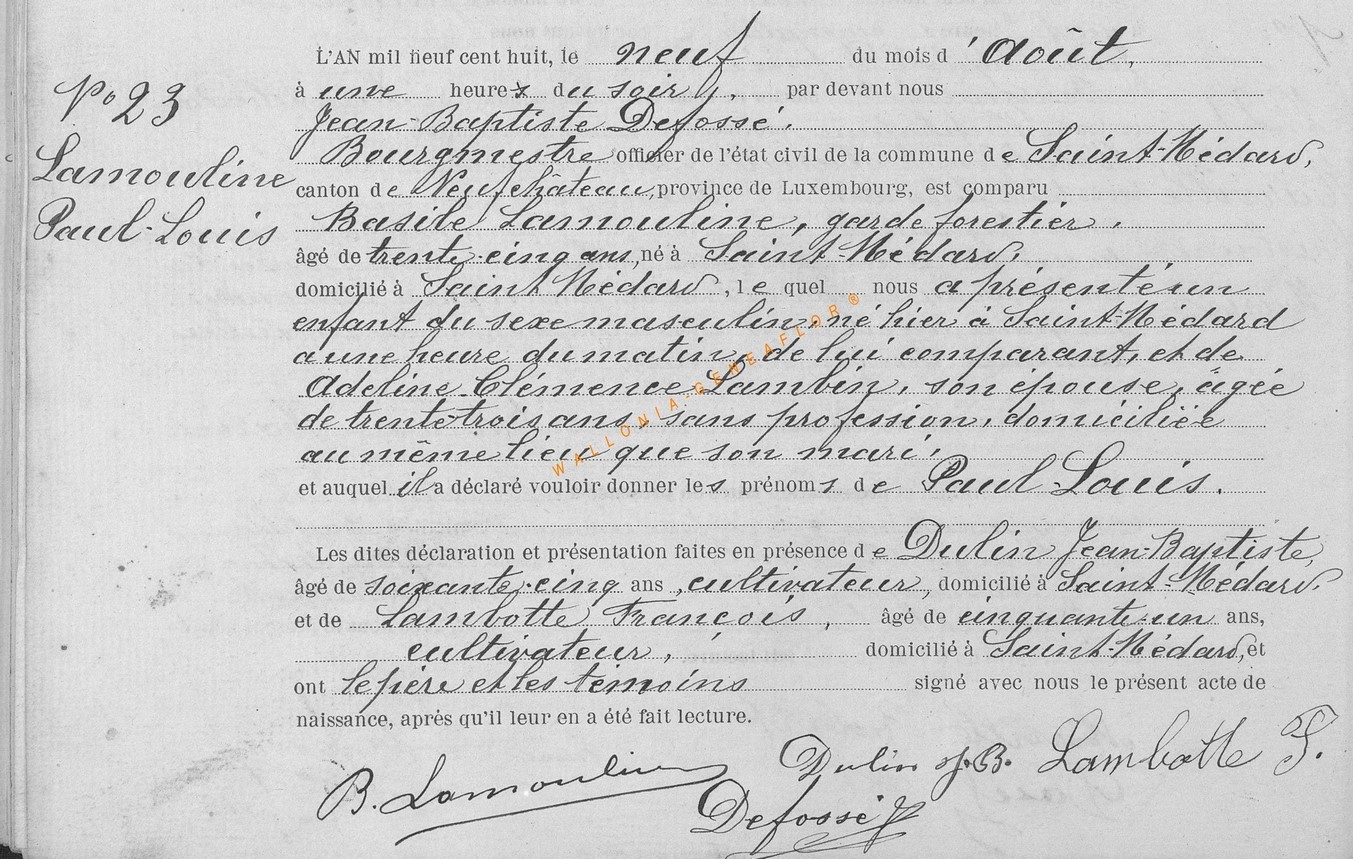 N° 23
Lamouline
Paul-Louis
L'AN mil neuf cent huit, le neuf du mois d'août,
à une heure du soir, par devant nous
Jean-Baptiste Defossé,
Bourgmestre officier de l'état civil de la commune de Saint-Médard,
canton de Neufchâteau, province de Luxembourg, est comparu
Basile Lamouline, garde forestier,
âgé de trente-cinq ans, né à Saint-Médard,
domicilié à Saint-Médard, lequel nous a présenté un
enfant du sexe masculin, né hier à Saint-Médard
a une heure du matin, de lui comparant, et de
Adeline Clémence Lambin, son épouse, âgée
de trente-trois ans, sans profession, domiciliée
au même lieu que son mari,
et auquel il a déclaré vouloir donner les prénoms de Paul Louis.
Les dites déclaration et présentation faites en présence de Dulin Jean-Baptiste,
âgé de soixante-cinq ans, cultivateur, domicilié à Saint-Médard
et de Lambotte François, âgé de cinquante-un ans,
cultivateur, domicilié à Saint-Médard, et
ont le père et les témoins signé avec nous le présent acte de
naissance, après qu'il leur en a été fait lecture.
B. Lamouline Dulin J.B. Lambotte F.
Defossé
WALLONIA.GENEAFLOR®